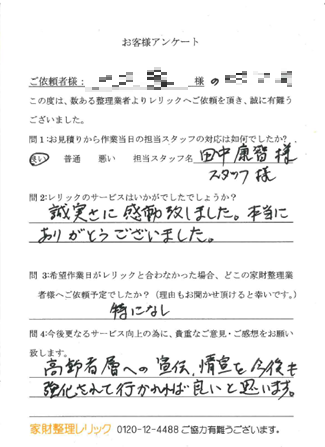 お客様アンケート
ご依頼者様： 様 の
この度は、数ある整理業者よりレリックへご依頼を頂き、誠に有難う
ございました。
問1:お見積りから作業当日の担当スタッフの対応は如何でしたか?
良い 普通 悪い 担当スタッフ名 田中康智様
スタッフ様
問2:レリックのサービスはいかがでしたでしょうか?
誠実さに感動致しました。本当に
ありがとうございました。
問 3:希望作業日がレリックと合わなかった場合、どこの家財整理業
者様へご依頼予定でしたか?（理由もお聞かせ頂けると幸いです。）
特になし
問4:今後更なるサービス向上の為に、貴重なご意見・ご感想をお願い
致します。
高齢者層への宣伝、情宣を今後も
強化されて行かれれば良いと思います。
家財整理レリック 0120-12-4488 ご協力有難うございます。